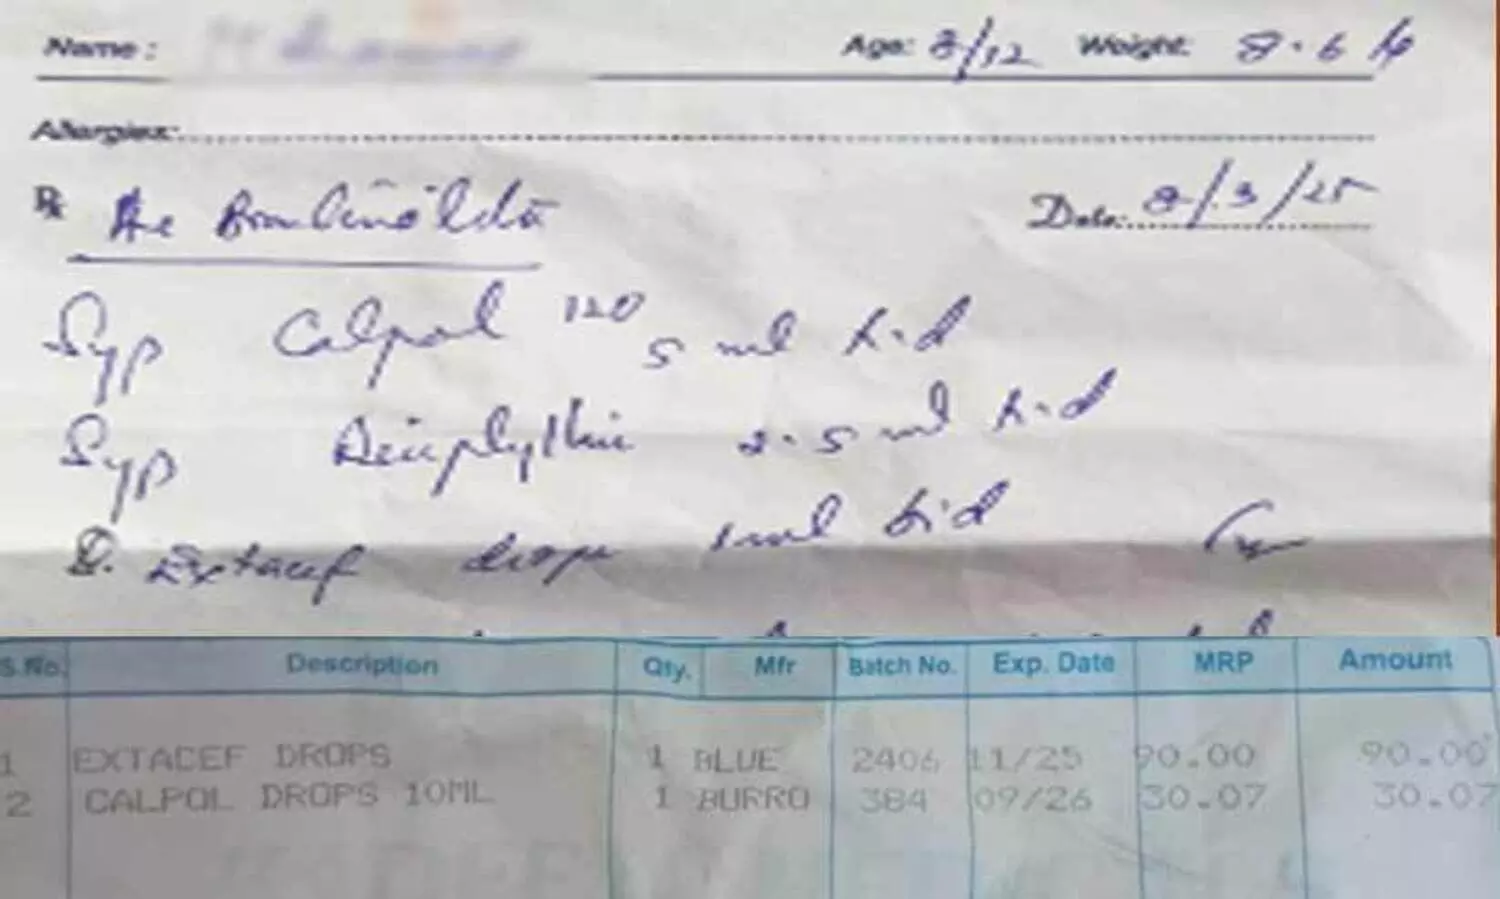 Name :
Age: 8/12 Weight: 8.6 kg
Allergies:
Rx
Date: 8/3/25
Syp Calpol 120 5 ml t.d
Syp 2.5 ml t.d
D. Extacef drop 1 ml b.d
S.No. Description Qty. Mfr Batch No. Exp. Date MRP Amount
1 EXTACEF DROPS 1 BLUE 2406 11/25 90.00 90.00
2 CALPOL DROPS 10ML 1 BURRO 384 09/26 30.07 30.07